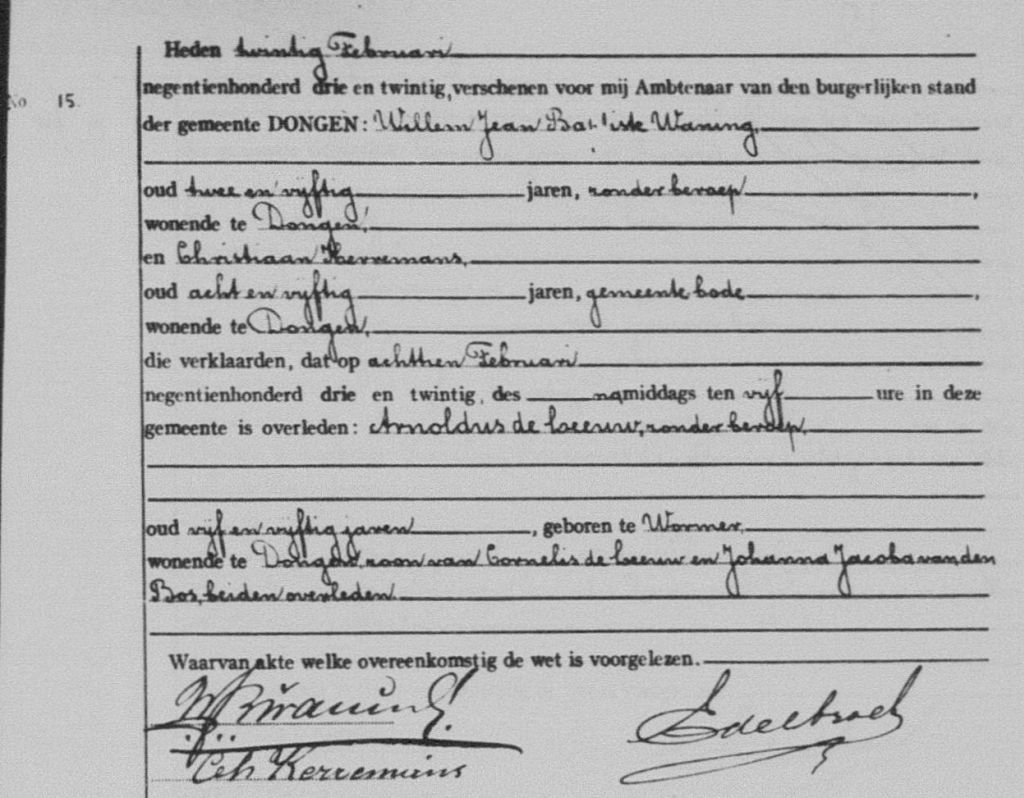 Heden twintig Februari
negentienhonderd drie en twintig, verschenen voor mij Ambtenaar van den burgerlijken stand
No 15.
der gemeente DONGEN: Willem Jean Batiste Waning,
oud twee en vijftig jaren, zonder beroep,
wonende te Dongen,
en Christiaan Kerremans,
oud acht en vijftig jaren, gemeente bode,
wonende te Dongen,
die verklaarden, dat op achttien Februari
negentienhonderd drie en twintig, des namiddags ten vijf ure in deze
gemeente is overleden: Arnoldus de Leeuw, zonder beroep,
oud vijf en vijftig jaren, geboren te Wormer,
wonende te Dongen, zoon van Cornelis de Leeuw en Johanna Jacoba van den
Bos, beiden overleden.
Waarvan akte welke overeenkomstig de wet is voorgelezen.
Ch Kerremans